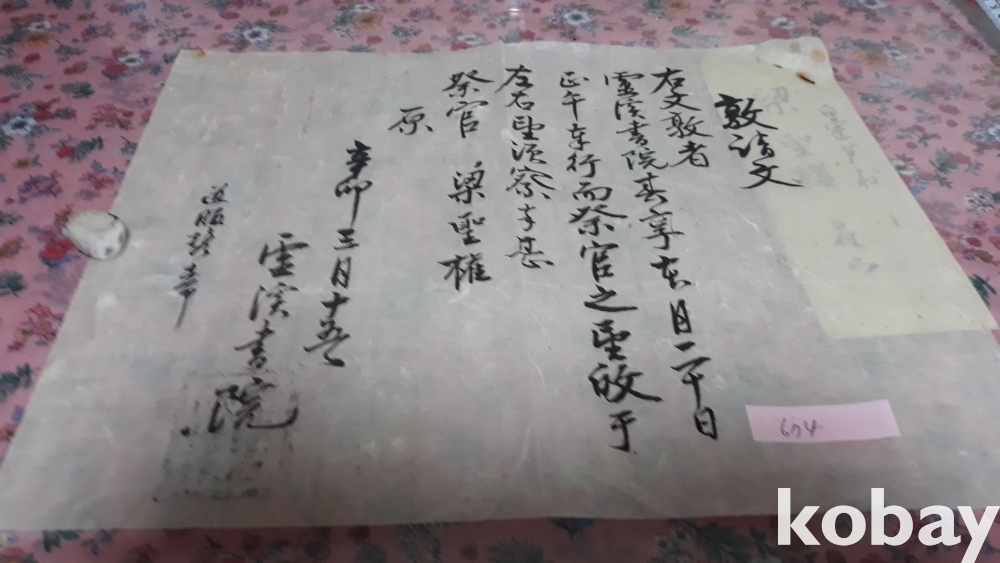 敦請文
右文敦者
靈溪書院春享本月二十日
正午奉行而祭官之望敀于
左右望須察幸甚
祭官 梁聖權
原
辛卯三月十五日
靈溪書院
694
kobay